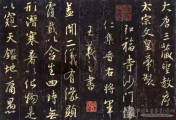 大唐三藏聖教序
太宗文皇帝製
弘福寺沙門懷
仁集晉右將軍
王羲之書
蓋聞二儀有像
顯覆載以含生四時無
形潛寒暑以化物是
以窺天鑑地庸愚